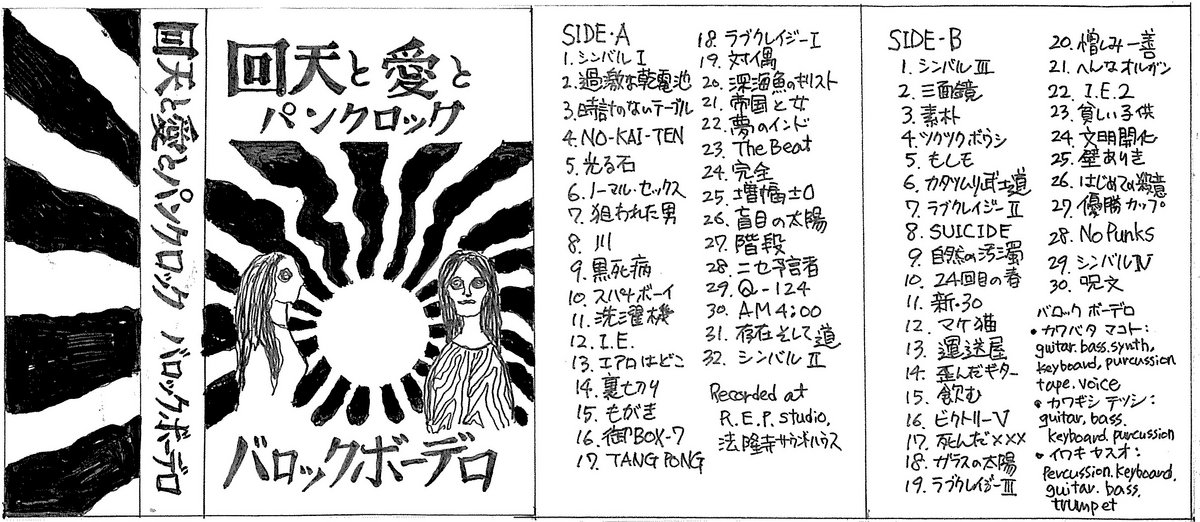 回天と愛とパンクロック バロックボーデロ
回天と愛と
パンクロック
バロックボーデロ
SIDE・A
1. シンバル I
2. 過激な乾電池
3. 時計のないテーブル
4. NO-KAI-TEN
5. 光る石
6. ノーマル・セックス
7. 狙われた男
8. 川
9. 黒死病
10. スパナボーイ
11. 洗濯機
12. I.E.
13. エアロはどこ
14. 裏切り
15. もがき
16. 御BOX-7
17. TANG PONG
18. ラブクレイジー I
19. 対偶
20. 深海魚のキリスト
21. 帝国と女
22. 夢のインド
23. The Beat
24. 完全
25. 増幅±0
26. 盲目の太陽
27. 階段
28. ニセ予言者
29. Q-124
30. AM4:00
31. 存在そして道
32. シンバル II
Recorded at
R.E.P. studio,
法隆寺サウンドハウス
SIDE-B
1. シンバル III
2. 三面鏡
3. 素朴
4. ツクツクボウシ
5. もしも
6. カタツムリ武士道
7. ラブクレイジー II
8. SUICIDE
9. 自然の汚濁
10. 24回目の春
11. 新・30
12. マケ猫
13. 運送屋
14. 歪んだギター
15. 飲む
16. ビクトリーV
17. 死んだ×××
18. ガラスの太陽
19. ラブクレイジー III
20. 憎しみ一善
21. へんなオルガン
22. I.E.2
23. 貧しい子供
24. 文明開化
25. 壁ありき
26. はじめての殺意
27. 優勝カップ
28. No Punks
29. シンバル IV
30. 呪文
バロックボーデロ
・カワバタ マコト:
guitar. bass. synth,
keyboard, purcussion
tape. voice
・カワギシ テツシ:
guitar, bass.
keyboard purcussion
・イワキ ヤスオ:
Percussion. keyboard,
guitar. bass,
trumpet